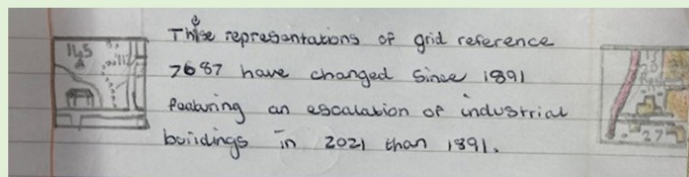 145
These representations of grid reference
7687 have changed since 1891
featuring an escalation of industrial
buildings in 2021 than 1891.
27